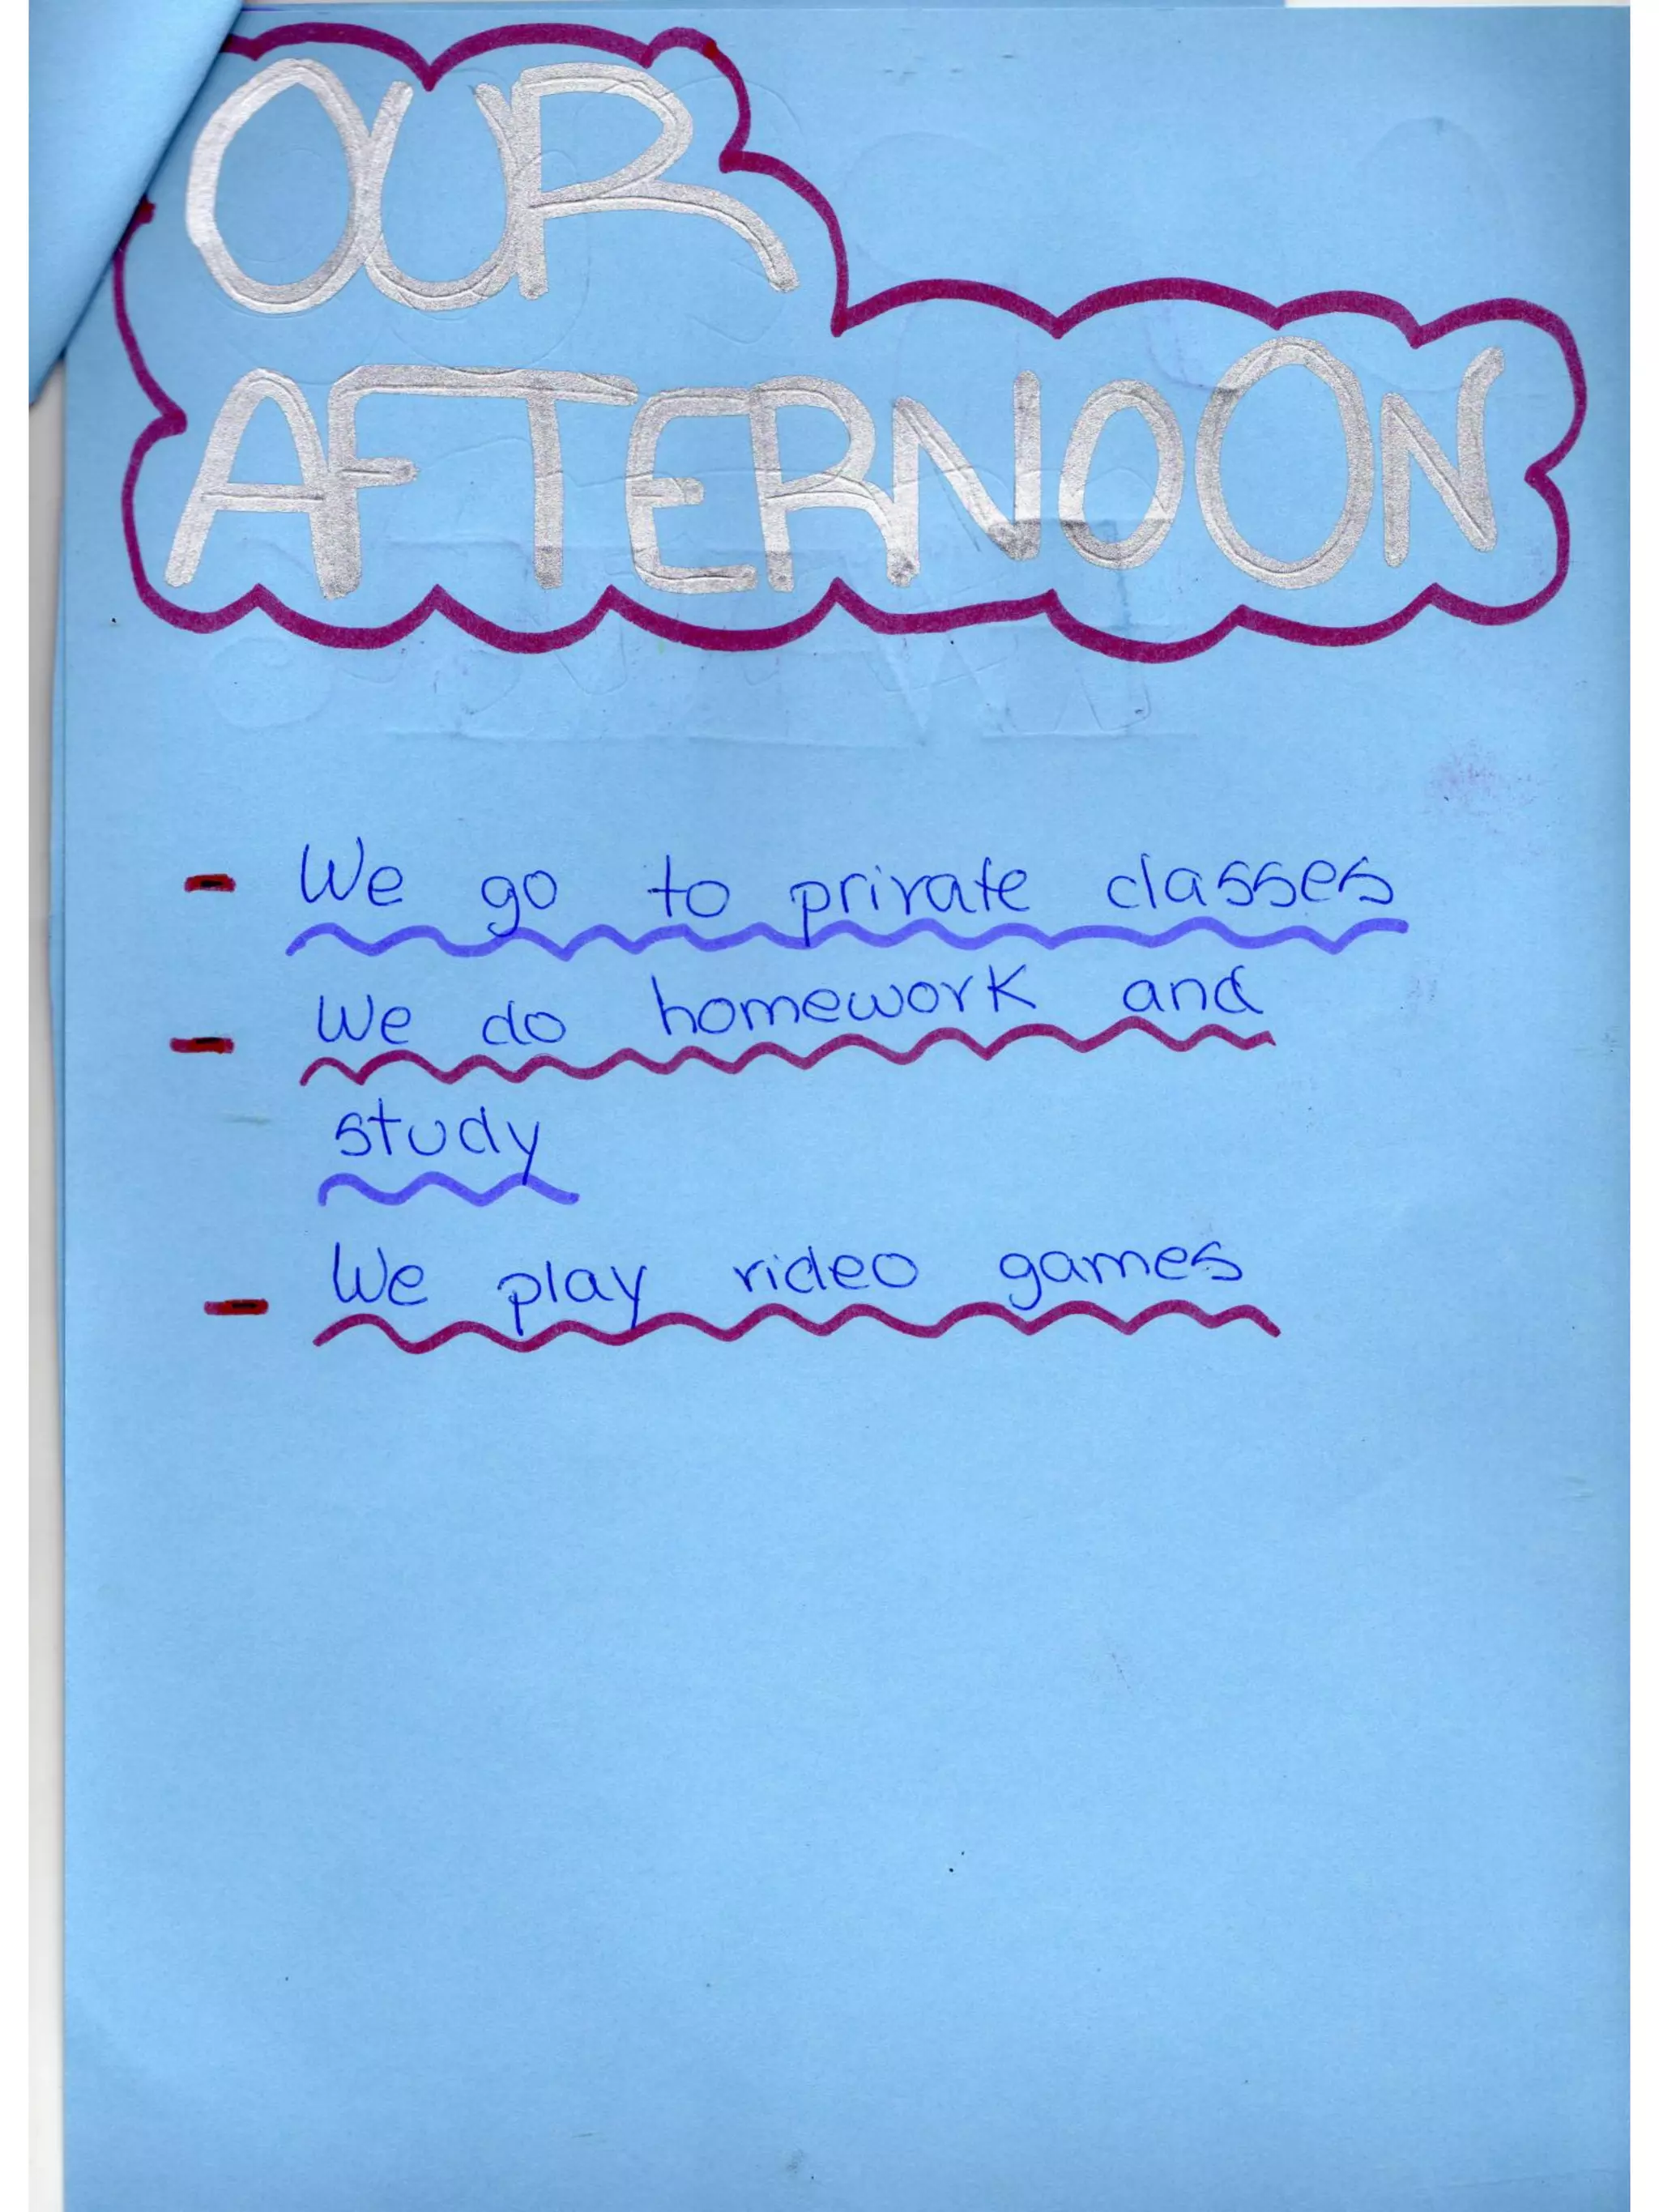 OUR
AFTERNOON
- We go to private classes
- We do homework and
study
- We play video games